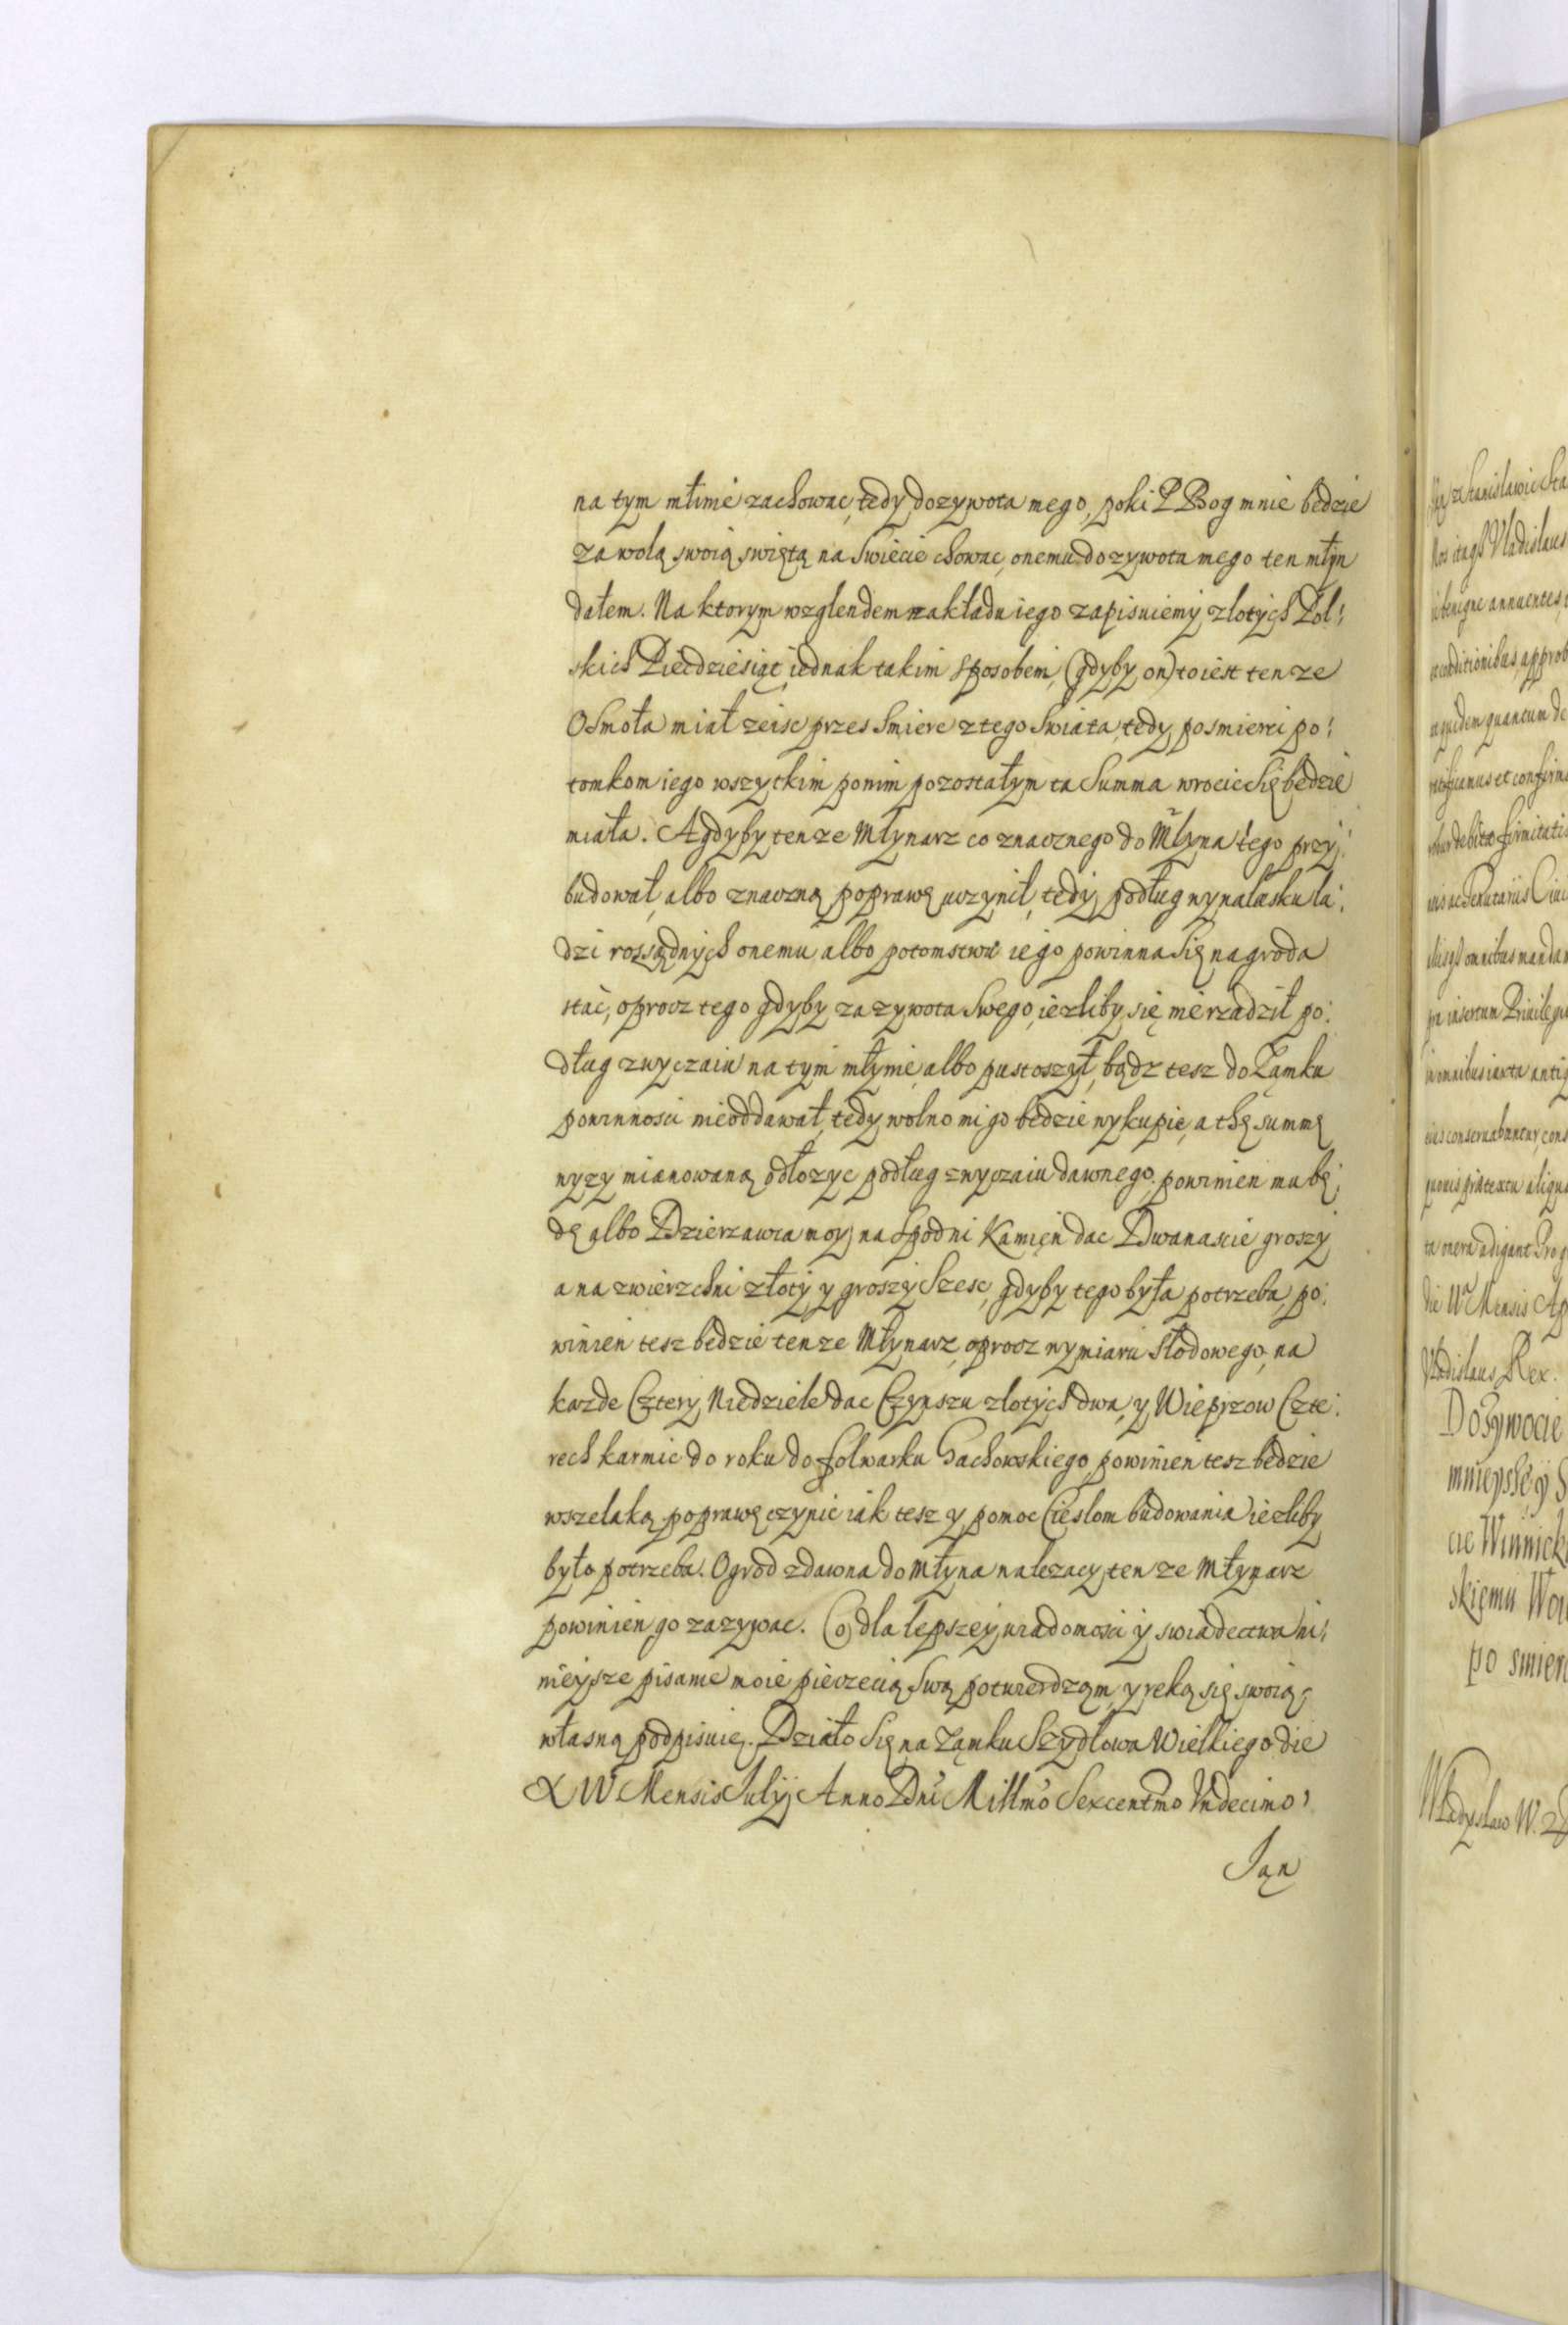 na tym młinie zachowac, tedy dozywota mego, poki P Bog mnie będzie
za wolą swoią swiętą na Swiecie chowac, onemu dozywota mego ten młyn
dałem. Na ktorym wzglendem nakładu iego zapisuiemy zlotych Pol:
skich Piecdziesiąt, iednak takim Sposobem, (gdyby on) to iest ten ze
Osmoła miał zeisc przes Smierc z tego Swiata, tedy po smierci po:
tomkom iego wszytkim po nim pozostałym ta Summa wrocic Się będzie
miała. A gdyby ten ze Młynarz co znacznego do Młyna tego przy:
budował, albo znaczną poprawę uczynił, tedy podług wynalasku lu:
dzi rossądnych onemu albo potomstwu iego powinna Się nagroda
stac, oprocz tego gdyby za zywota Swego, iezliby się nie rzadził po:
dług zwyczaiu na tym młynie, albo pustoszył, bądz tesz do Zamku
powinnosci nieoddawał, tedy wolno mi go będzie wykupic, a thę summę
wyzy mianowaną odłozyc podług zwyczaiu dawnego. powinien mu bę:
dę albo Dzierzawca moy na Spodni Kamięn dac Dwanascie groszy
a na zwierzchni złoty y groszy Szesc, gdyby tego była potrzeba, po:
winien tesz będzie ten ze Młynarz, oprocz wymiaru Słodowego, na
kazde Cztery Niedziele dac Czynszu zlotych dwa, y Wieprzow Czte:
rech karmic do roku do folwarku Gachowskiego, powinien tesz będzie
wszelaką poprawę czynic iak tesz y pomoc Cieslom budowania iezliby
było potrzeba. Ogrod zdawna do Młyna nalezacy ten ze Młynarz
powinien go zazywac. Co dla lepszey wiadomosci y swiadectwa ni:
nieysze pisanie moie pieczecią Swą potwierdzam, y ręką się swoią
własną podpisuię. Działo Się na Zamku Szydłowa Wielkiego die
XIV Mensis July Anno Dni Millmo Sexcentmo Undecimo.
Jan
Nos itaqs Vladislaus
conditionibus approb
et quidem quantum de
ratificamus et confirma
debitæ firmitatis
omnibus mandam
in omnibus iuxta antiq
conservabuntur, cons
die Wa Mensis Ap
Vladislaus Rex.
Dozywocie
mnieysze y S
cie Winnick
skięmu Woi
po smierc
Władysław W.